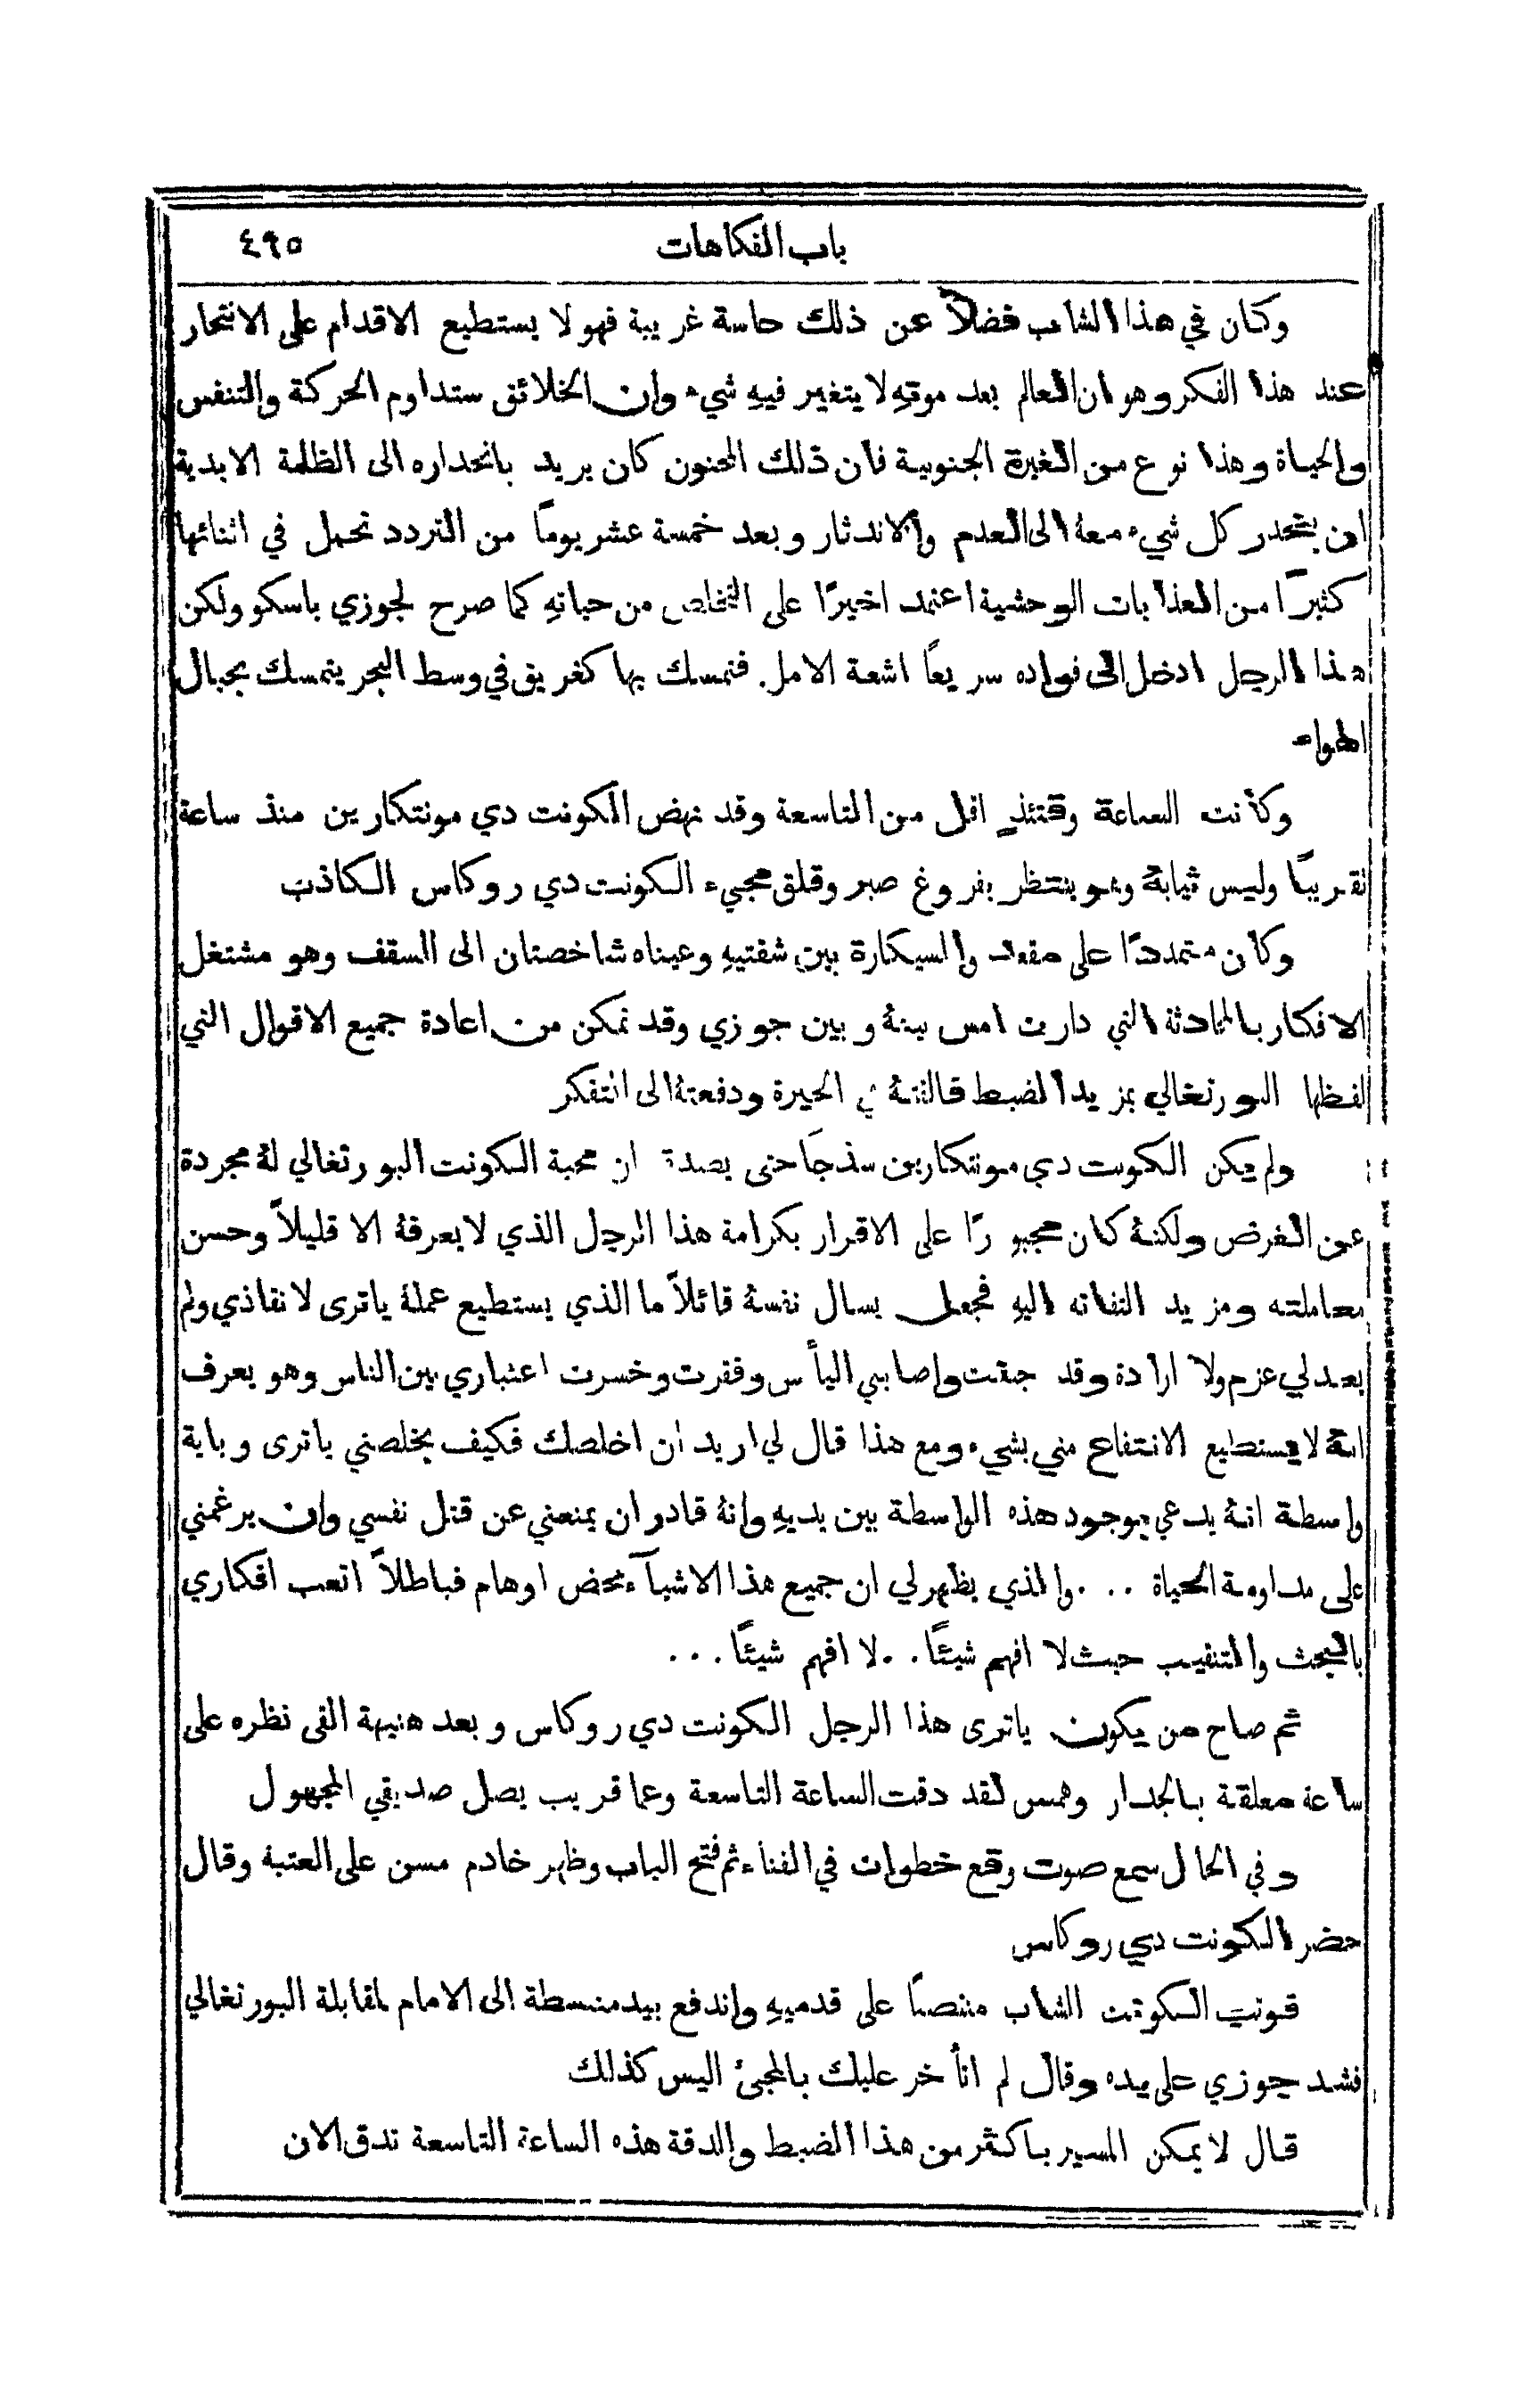 باب الفكاهات ٤٩٥
وكان في هذا الشاب فضلاً عن ذلك حاسة غريبة فهو لا يستطيع الاقدام على الانتحار
عند هذا الفكر وهو ان العالم بعد موتهِ لا يتغير فيهِ شيء وان الخلائق ستداوم الحركة والتنفس
والحياة وهذا نوع من الغيرة الجنونية فان ذلك المجنون كان يريد بانحداره الى الظلمة الابدية
ان ينحدر كل شيء معهُ الى العدم والاندثار وبعد خمسة عشر يوماً من التردد تحمل في اثنائها
كثيراً من العذابات الوحشية اعتمد اخيرًا على التخلص من حياتهِ كما صرح لجوزي باسكو ولكن
هذا الرجل ادخل الى فواده سريعاً اشعة الامل. فتمسك بها كغريق في وسط البحر يتمسك بحبال
الهواء
وكانت الساعة وقتئذٍ اقل من التاسعة وقد نهض الكونت دي مونتكارين منذ ساعة
تقريباً ولبس ثيابهُ وهو ينتظر بفروغ صبر وقلق مجيء الكونت دي روكاس الكاذب
وكان متمددًا على مقعد والسيكارة بين شفتيهِ وعيناه شاخصتان الى السقف وهو مشتغل
الافكار بالمحادثة التي دارت امس بينهُ وبين جوزي وقد تمكن من اعادة جميع الاقوال التي
لفظها البورتغالي بمزيد الضبط فالقتهُ في الحيرة ودفعتهُ الى التفكر
ولم يكن الكونت دي مونتكارين سذجاً حتى يصدق ان محبة الكونت البورتغالي لهُ مجردة
عن الغرض ولكنهُ كان مجبورًا على الاقرار بكرامة هذا الرجل الذي لا يعرفهُ الا قليلاً وحسن
معاملته ومزيد التفاته اليهِ فجعل يسال نفسهُ قائلاً ما الذي يستطيع عملهُ ياترى لانقاذي ولم
يعد لي عزم ولا ارادة وقد جننت واصابني اليأس وفقرت وخسرت اعتباري بين الناس وهو يعرف
انهُ لا يستطيع الانتفاع مني بشيء ومع هذا قال لي اريد ان اخلصك فكيف يخلصني ياترى وباية
واسطة انهُ يدعي بوجود هذه الواسطة بين يديهِ وانهُ قادر ان يمنعني عن قتل نفسي وان يرغمني
على مداومة الحياة ... والذي يظهر لي ان جميع هذا الاشياء محض اوهام فباطلاً اتعب افكاري
بالبحث والتنقيب حيث لا افهم شيئًا. .. لا افهم شيئًا ...
ثم صاح من يكون ياترى هذا الرجل الكونت دي روكاس وبعد هنيهة القى نظره على
ساعة معلقة بالجدار وهمس لقد دقت الساعة التاسعة وعما قريب يصل صديقي المجهول
وفي الحال سمع صوت وقع خطوات في الفناء ثم فتح الباب وظهر خادم مسن على العتبة وقال
حضر الكونت دي روكاس
فوثب الكونت الشاب منتصباً على قدميهِ واندفع بيد منبسطة الى الامام لمقابلة البورتغالي
فشد جوزي على يده وقال لم اتأخر عليك بالمجئ اليس كذلك
قال لا يمكن السير باكثر من هذا الضبط والدقة هذه الساعة التاسعة تدق الان